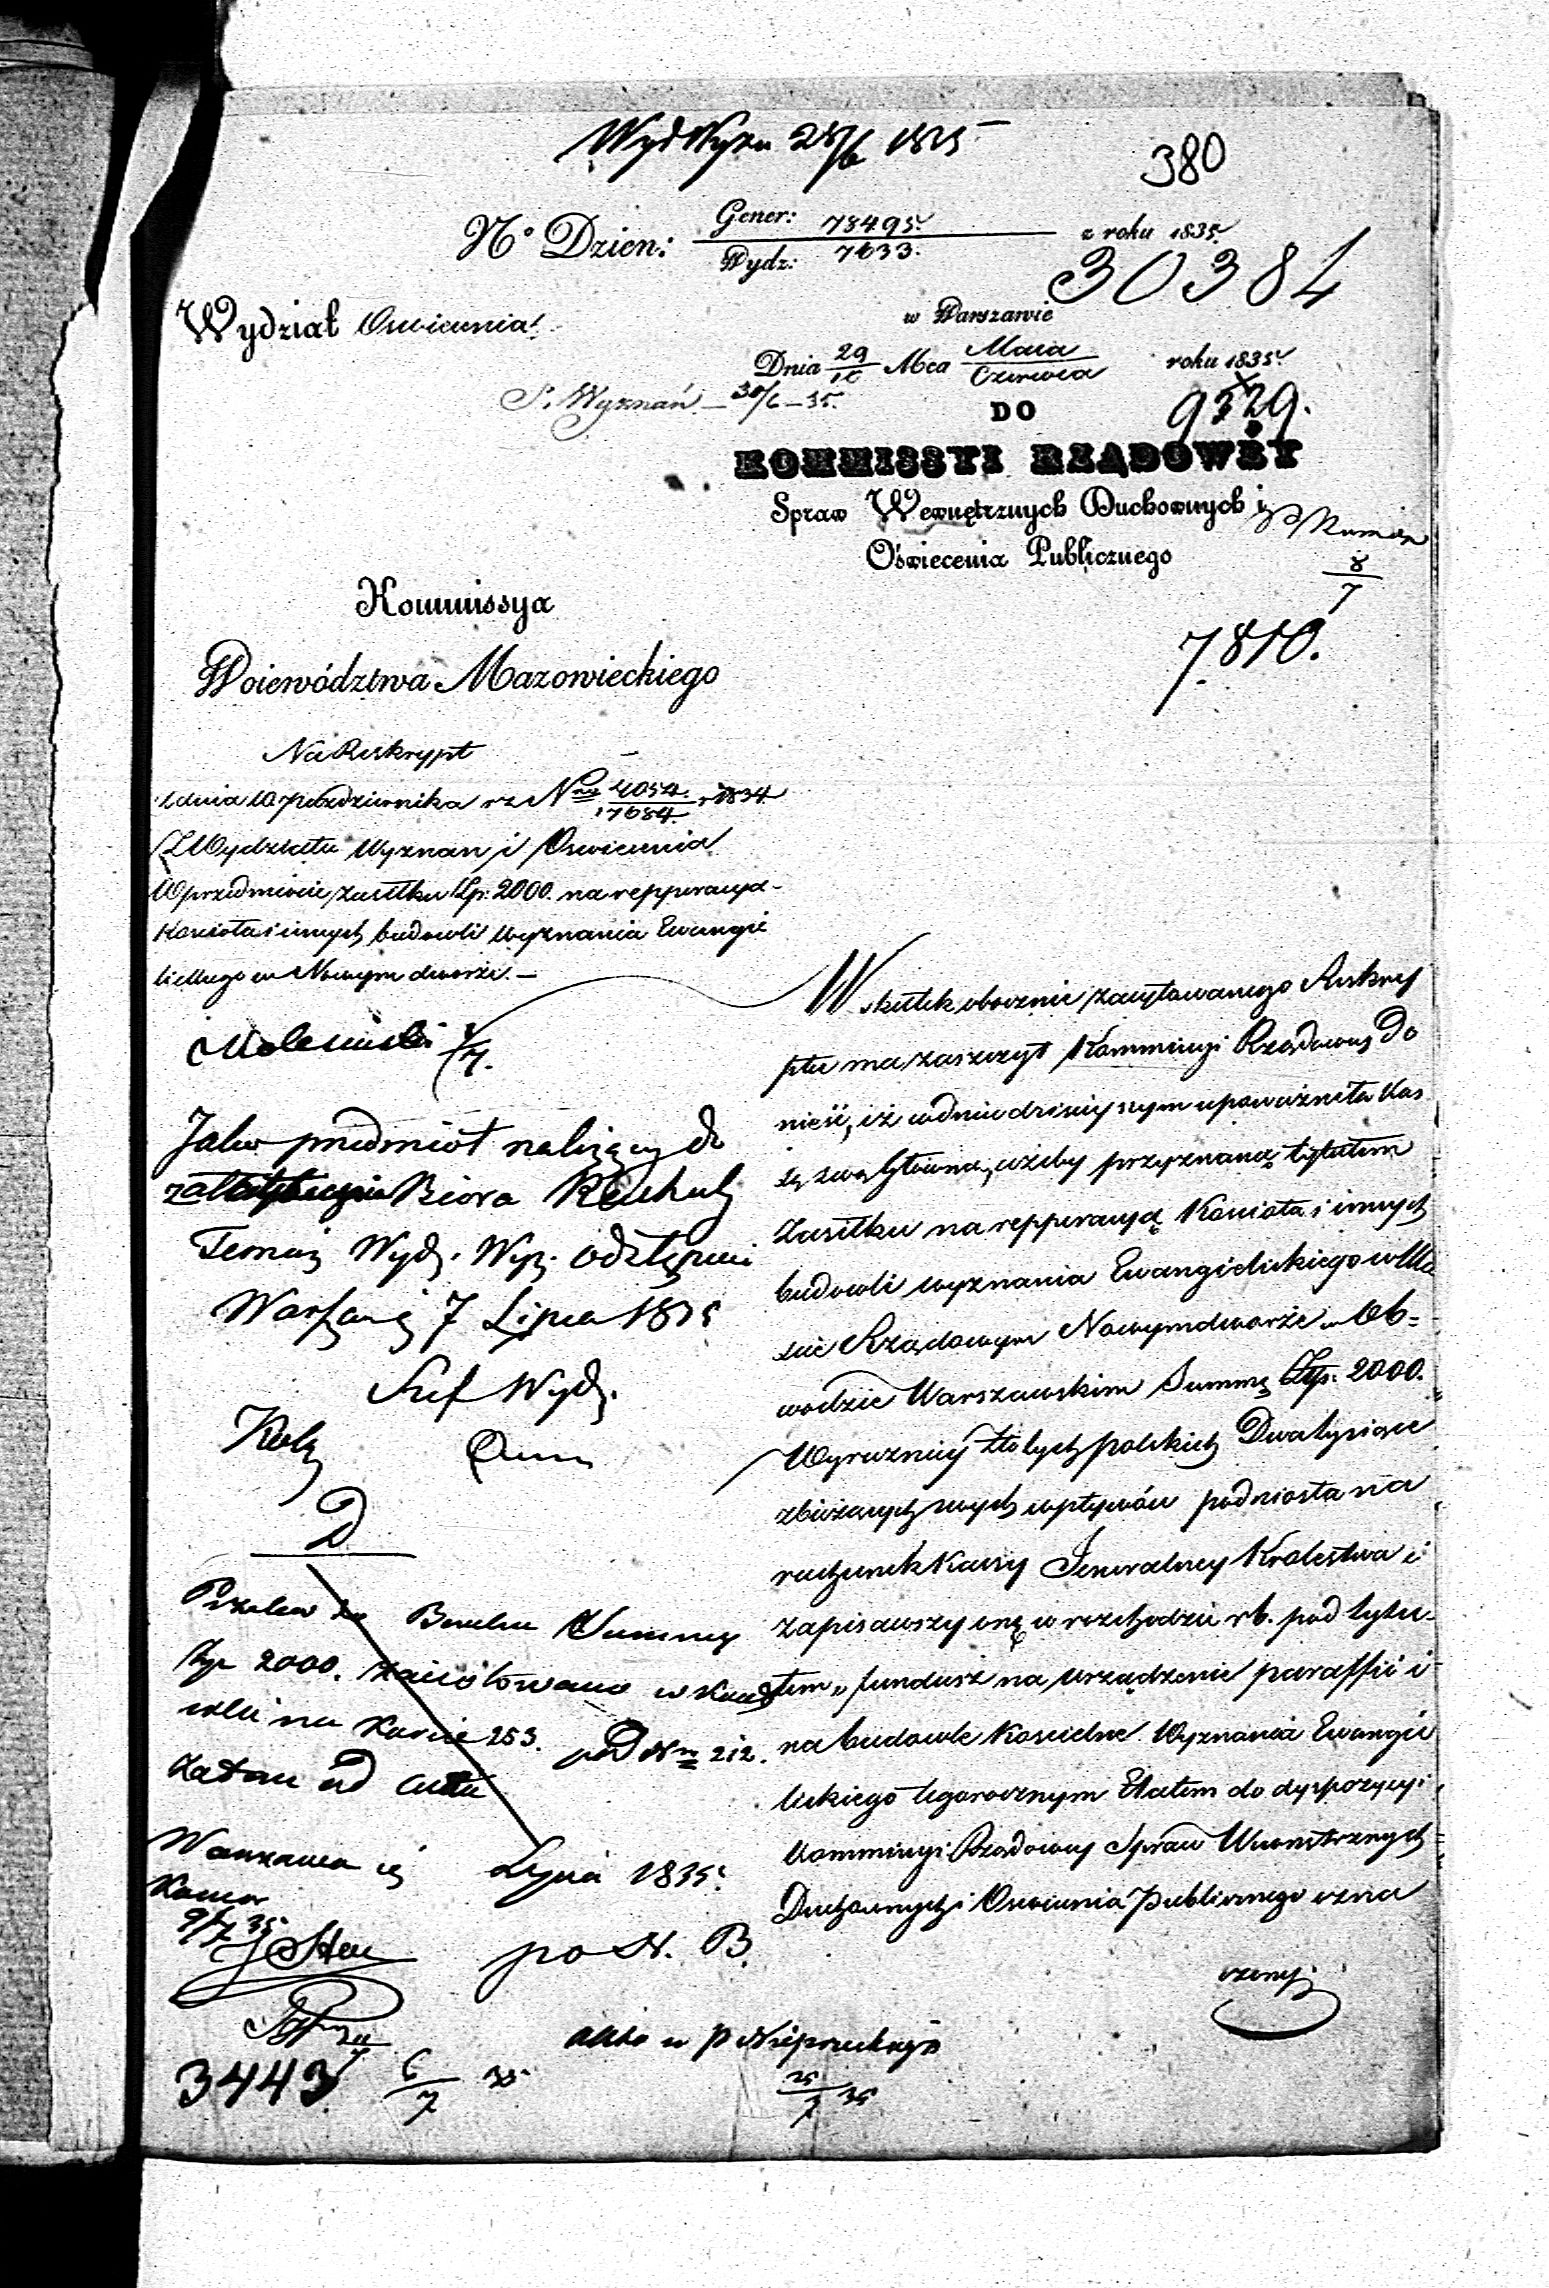 380
Nº Dzien: Gener: 78495. z roku 1835.
Wydz: 7633.
30384
Wydział Oswiecenia.
w Warszawie
Dnia 29/10 Mca Maia/Czerwca roku 1835.
S. Wyznań – 30/6 – 35.
9529.
DO
KOMMISSYI RZĄDOWÉY
Spraw Wewnętrznych Duchownych i
Oświecenia Publicznego
8/7
7810.
Kommissya
Woiewództwa Mazowieckiego
Na Reskrypt
z dnia 10 października rz Nro 4054/17684 r 1834
Z Wydziału Wyznan i Oswiecenia
W przedmiocie zasiłku Złp: 2000. na repperacyą
Koscioła i innych budowli wyznania Ewangie
lickiego w Nowym dworze. —
W skutek obocznie zacytowanego Reskryp
ptu ma zaszczyt Kommissyi Rządowey Do
nieść, iż w dniu dzisieyszym upoważniła Kas
sę swą Główną, ażeby przyznaną tytułem
Zasiłku na repperacyą Kościoła i innych
budowli wyznania Ewangielickiego w Mie
scie Rządowym Nowymdworze w Ob=
wodzie Warszawskim Summę Złp: 2000.
Wyrazniey Złotych polskich Dwa tysiące
z bieżących swych wpływów podniosła na
rachunek Kassy Jeneralney Krolestwa i
zapisawszy onę w rozchodzie rb. pod tytu-
łem „ fundusz na urządzenie paraffii i
na budowle Koscielne Wyznania Ewangie
lickiego tegorocznym Etatem do dyspozycyi
Kommissyi Rządowey Spraw Wewnetrznych
Duchownych i Oswiecenia Publicznego ozna
czony.
8/7.
Jako przedmiot należący do
załatwienia Biora Rachub
Temuż Wydz. Wyz. odstępuie
Warszawa 7 Lipca 1835
Szef Wydz.
D
Przelew z Banku Summy
Złp 2000. zanotowano w Kontr
olli na Karcie 253. pod Nrm 212.
Zatem ad acta
Warszawa Lipca 1835.
po N. B.
9/7 35.
3443 6/7 35
akta u P Nieprzeckiego
25/7 35